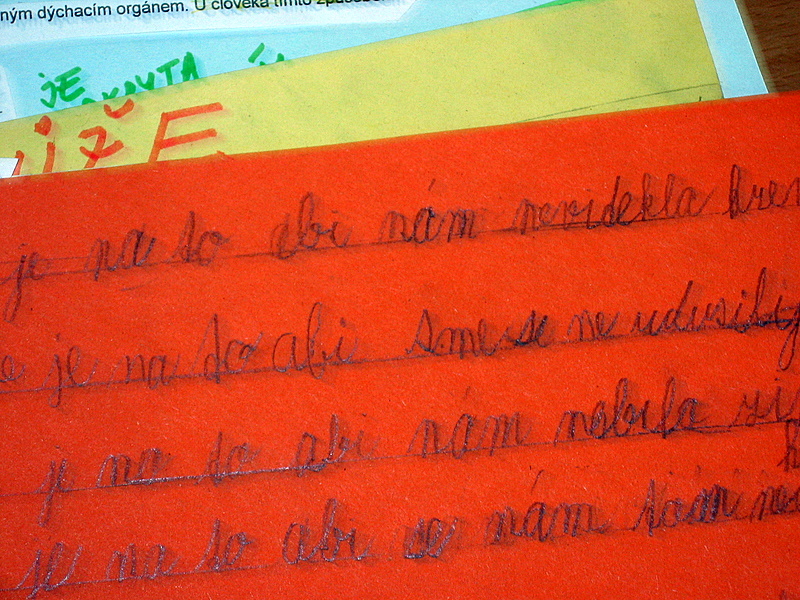 ným dýchacím orgánem. U člověka tímto způsobem
JE
ŮŽE
je na to abi nám nevidekla kre
je na to abi sme se ne udusili
je na to abi nám nebila zi
je na to abi se nám tam ne